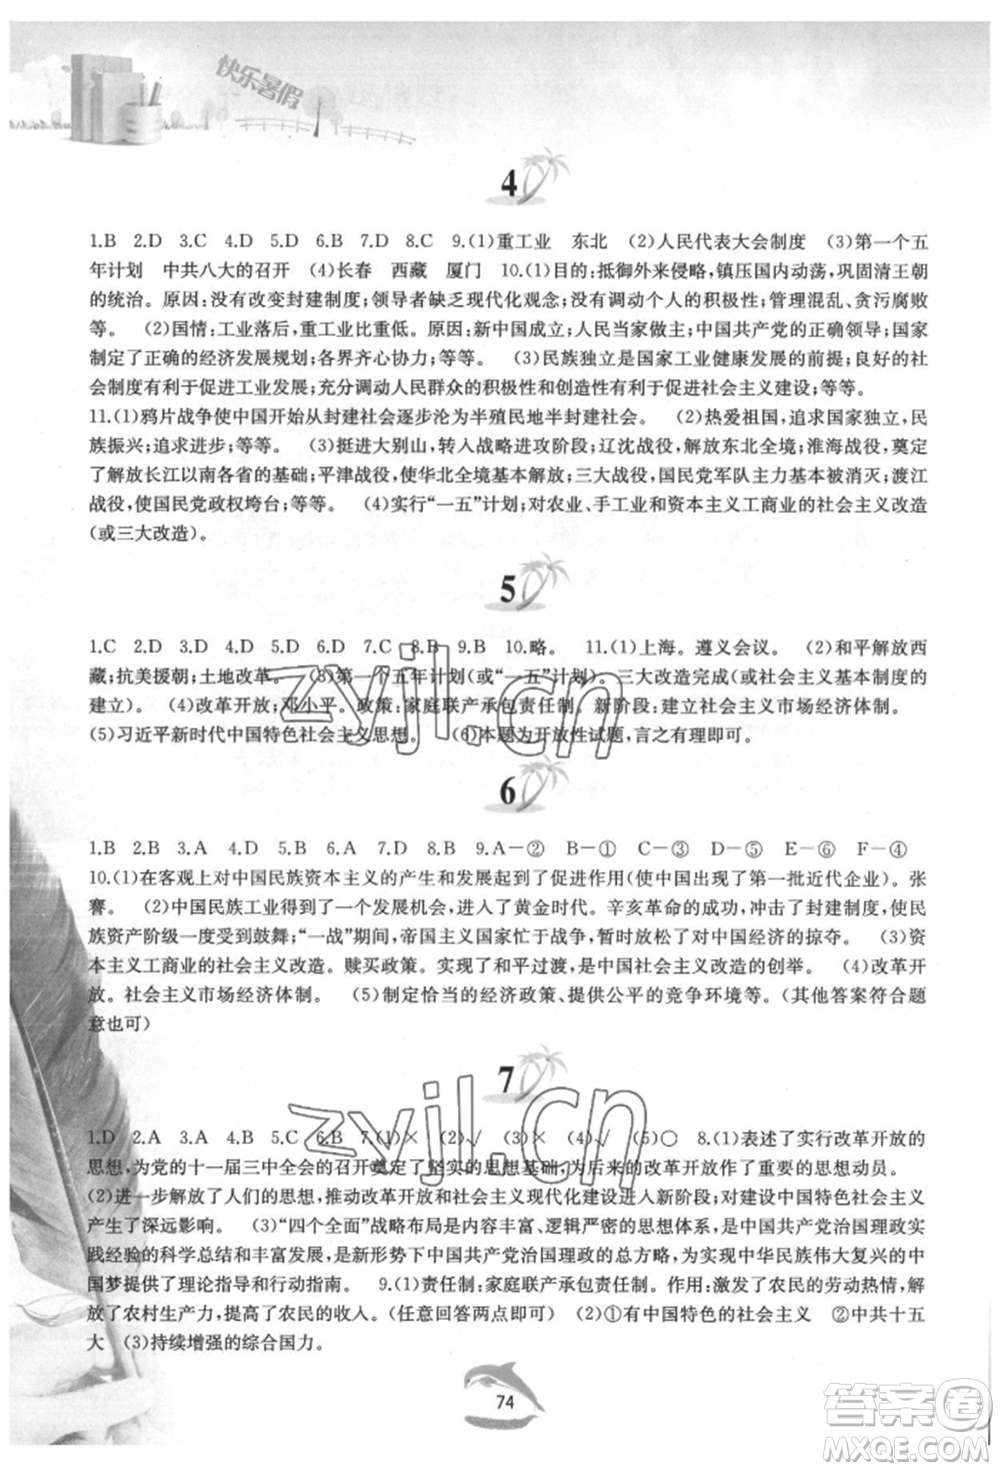 快乐暑假
4
1.B 2.D 3.C 4.D 5.D 6.B 7.D 8.C 9.(1)重工业 东北 (2)人民代表大会制度 (3)第一个五
年计划 中共八大的召开 (4)长春 西藏 厦门 10.(1)目的:抵御外来侵略,镇压国内动荡,巩固清王朝
的统治。原因:没有改变封建制度;领导者缺乏现代化观念;没有调动个人的积极性;管理混乱、贪污腐败
等。 (2)国情:工业落后,重工业比重低。原因:新中国成立;人民当家做主;中国共产党的正确领导;国家
制定了正确的经济发展规划;各界齐心协力;等等。 (3)民族独立是国家工业健康发展的前提;良好的社
会制度有利于促进工业发展;充分调动人民群众的积极性和创造性有利于促进社会主义建设;等等。
11.(1)鸦片战争使中国开始从封建社会逐步沦为半殖民地半封建社会。 (2)热爱祖国,追求国家独立,民
族振兴;追求进步;等等。 (3)挺进大别山,转入战略进攻阶段;辽沈战役,解放东北全境;淮海战役,奠定
了解放长江以南各省的基础;平津战役,使华北全境基本解放;三大战役,国民党军队主力基本被消灭;渡江
战役,使国民党政权垮台;等等。 (4)实行“一五”计划;对农业、手工业和资本主义工商业的社会主义改造
(或三大改造)。
5
1.C 2.D 3.D 4.D 5.D 6.D 7.C 8.B 9.B 10.略。 11.(1)上海。遵义会议。 (2)和平解放西
藏;抗美援朝;土地改革。 (3)第一个五年计划(或“一五”计划)。三大改造完成(或社会主义基本制度的
建立)。 (4)改革开放;邓小平。政策:家庭联产承包责任制。新阶段:建立社会主义市场经济体制。
(5)习近平新时代中国特色社会主义思想。 (6)本题为开放性试题,言之有理即可。
6
1.B 2.B 3.A 4.D 5.B 6.A 7.D 8.B 9.A—② B—① C—③ D—⑤ E—⑥ F—④
10.(1)在客观上对中国民族资本主义的产生和发展起到了促进作用(使中国出现了第一批近代企业)。张
謇。 (2)中国民族工业得到了一个发展机会,进入了黄金时代。辛亥革命的成功,冲击了封建制度,使民
族资产阶级一度受到鼓舞;“一战”期间,帝国主义国家忙于战争,暂时放松了对中国经济的掠夺。 (3)资
本主义工商业的社会主义改造。赎买政策。实现了和平过渡,是中国社会主义改造的创举。 (4)改革开
放。社会主义市场经济体制。 (5)制定恰当的经济政策、提供公平的竞争环境等。(其他答案符合题
意也可)
7
1.D 2.A 3.A 4.B 5.C 6.B 7.(1)× (2)√ (3)× (4)√ (5)○ 8.(1)表述了实行改革开放的
思想,为党的十一届三中全会的召开奠定了坚实的思想基础,为后来的改革开放作了重要的思想动员。
(2)进一步解放了人们的思想,推动改革开放和社会主义现代化建设进入新阶段;对建设中国特色社会主义
产生了深远影响。 (3)“四个全面”战略布局是内容丰富、逻辑严密的思想体系,是中国共产党治国理政实
践经验的科学总结和丰富发展,是新形势下中国共产党治国理政的总方略,为实现中华民族伟大复兴的中
国梦提供了理论指导和行动指南。 9.(1)责任制:家庭联产承包责任制。作用:激发了农民的劳动热情,解
放了农村生产力,提高了农民的收入。(任意回答两点即可) (2)①有中国特色的社会主义 ②中共十五
大 (3)持续增强的综合国力。
74
zyjl.cn
zyjl.cn
答案圈
MXQE.COM